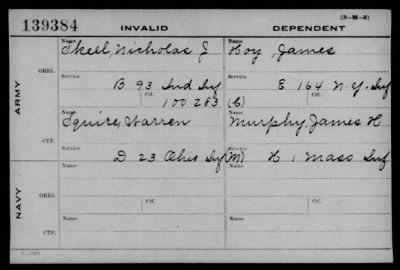 139384 INVALID DEPENDENT (3-28-3)
Name Name
Skeel, Nicholas J Hoy, James
ORIG. Service Service
B 93 Ind Inf E 164 N.Y. Inf
Ctf. Ctf.
ARMY 100283 (C)
Name Name
Squire, Warren Murphy, James H
CTF. Service Service
D 23 Ohio Inf (M) H 1 Mass Inf
Name Name
ORIG. Service Service
Ctf. Ctf.
NAVY
Name Name
CTF. Service Service